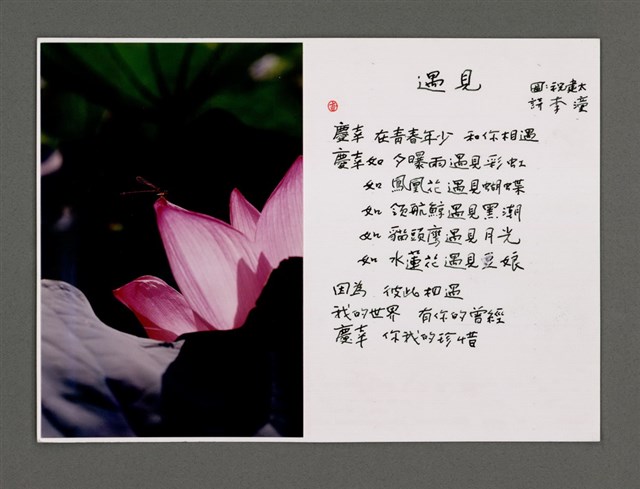 遇見
圖：祝建太
詩 李潼
慶幸 在青春年少 和你相遇
慶幸如 夕曝雨遇見彩虹
如 鳳凰花遇見蝴蝶
如 領航鯨遇見黑潮
如 貓頭鷹遇見月光
如 水蓮花遇見豆娘
因為 彼此相遇
我的世界 有你的曾經
慶幸 你我的珍惜